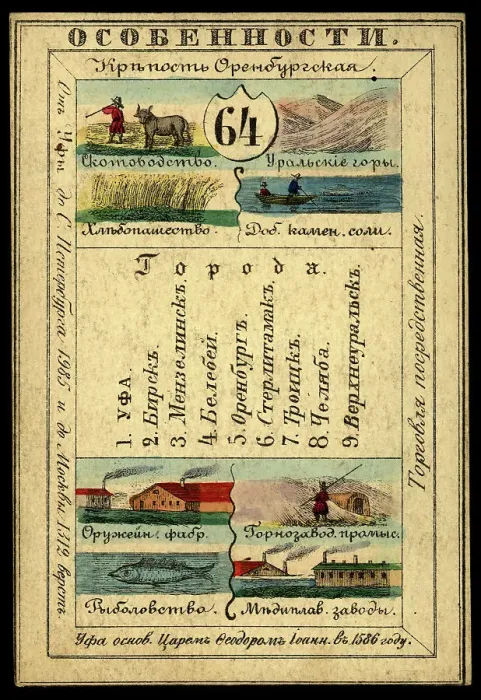 ОСОБЕННОСТИ.
Крѣпость Оренбургская.
64
Скотоводство.
Уральскіе горы.
Хлѣбопашество.
Доб. камен. соли.
Города.
1. УФА.
2. Бирскъ.
3. Мензелинскъ.
4. Белебей.
5. Оренбургъ.
6. Стерлитамакъ.
7. Троицкъ.
8. Челяба.
9. Верхнеуральскъ.
Оружейн. фабр.
Горнозавод. промыс.
Рыболовство.
Мѣдиплав. заводы.
Уфа основ. Царемъ Ѳеодоромъ Іоанн. въ 1586 году.
Отъ Уфы до С. Петербурга 1985 и до Москвы 1312 верстъ.
Торговля посредственная.